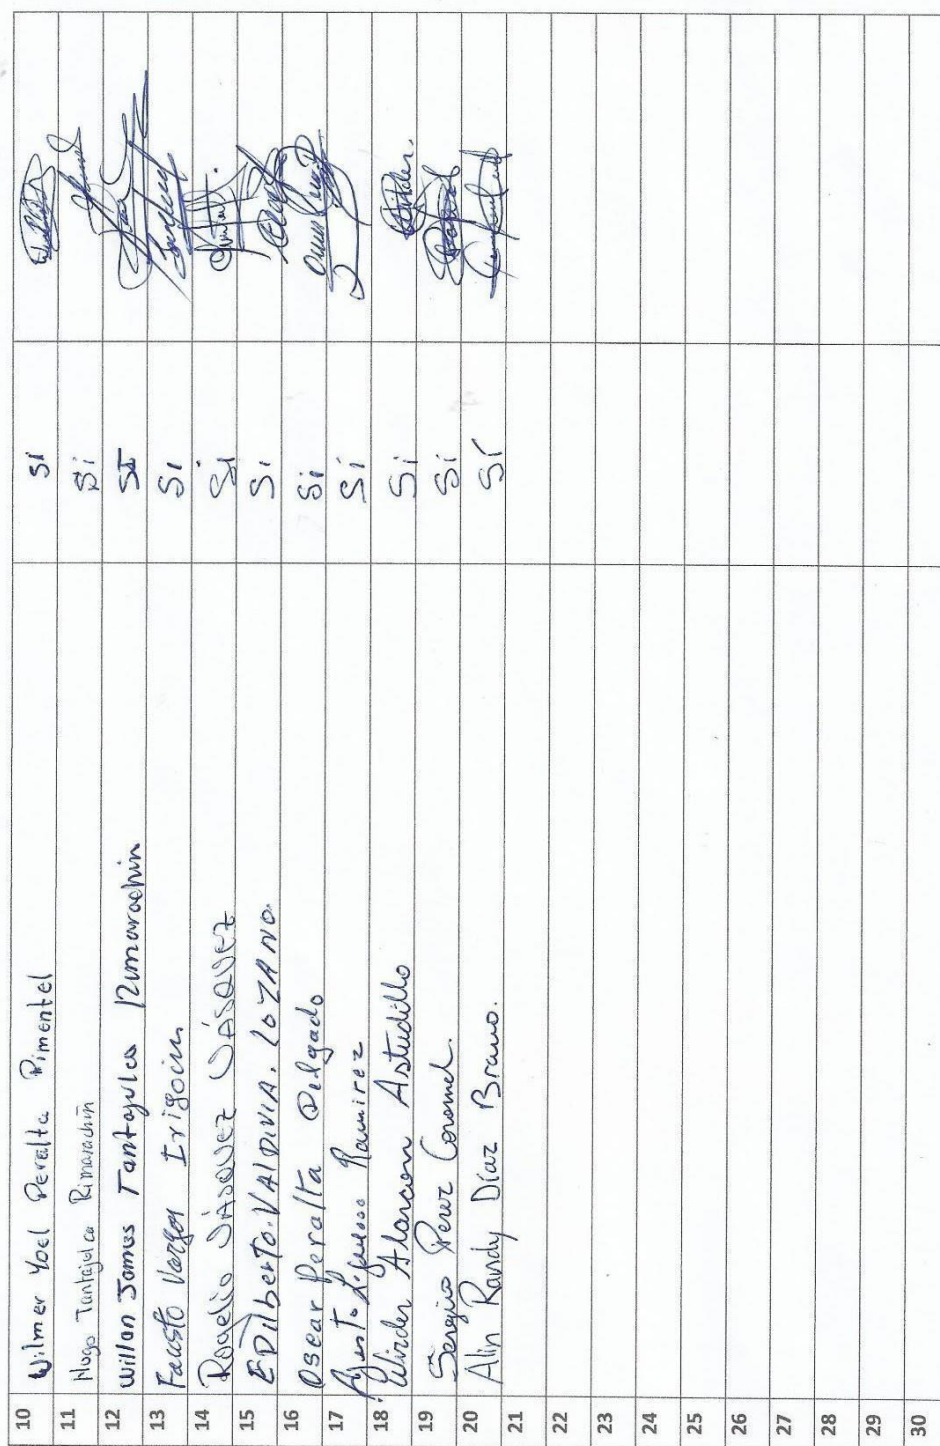 10 Wilmer Yoel Peralta Pimentel Si
11 Hugo Tantajulca Rimarachin Si
12 Willan James Tantajulca Rimarachin SI
13 Fausto Vargas Irigoin Si
14 Rogelio VÁSQUEZ VÁSQUEZ Si
15 EDilberto VALDIVIA LOZANO. Si
16 Oscar Peralta Delgado Si
17 Ramirez Sí
18 Wilder Alarcon Astudillo Si
19 Sergio Perez Coronel. Si
20 Alin Randy Díaz Bravo. Sí
21
22
23
24
25
26
27
28
29
30